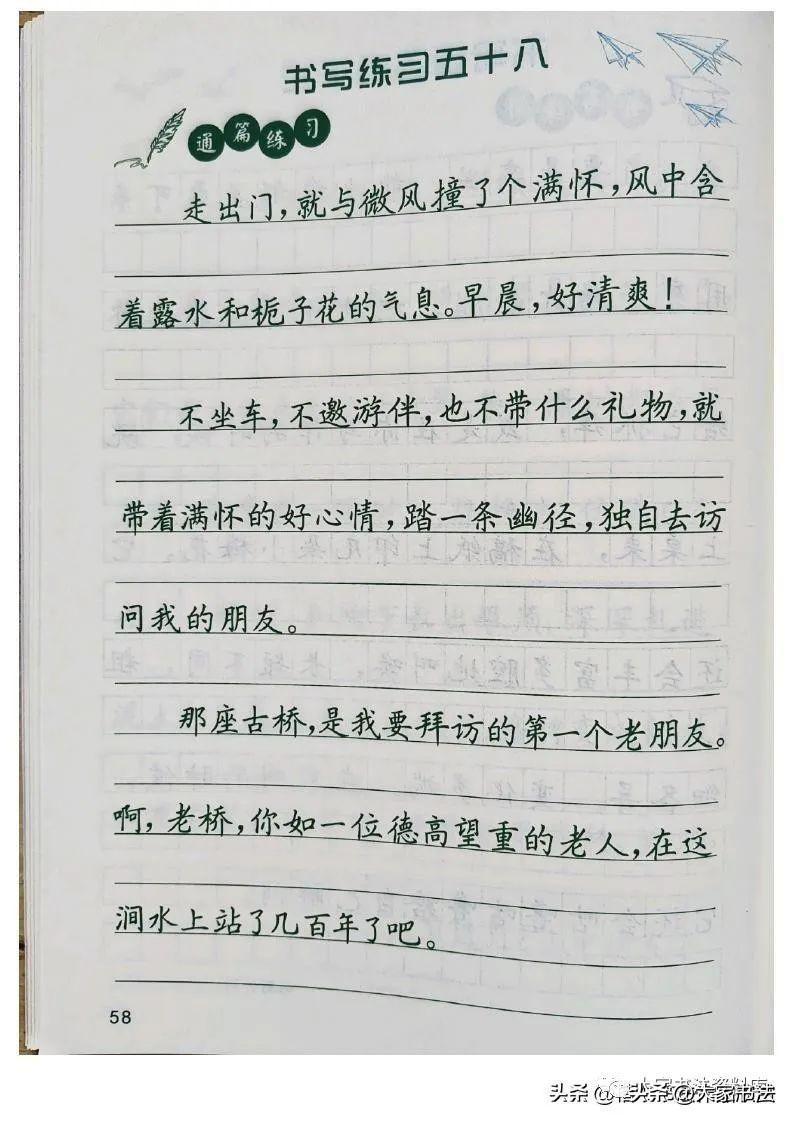 书写练习五十八
通篇练习
走出门，就与微风撞了个满怀，风中含
着露水和栀子花的气息。早晨，好清爽！
不坐车，不邀游伴，也不带什么礼物，就
带着满怀的好心情，踏一条幽径，独自去访
问我的朋友。
那座古桥，是我要拜访的第一个老朋友。
啊，老桥，你如一位德高望重的老人，在这
涧水上站了几百年了吧。
58
头条@大家书法